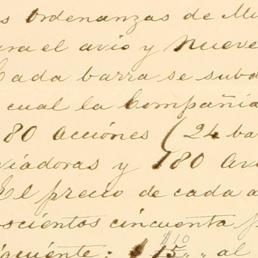 s Ordenanzas de Mi
ara el avio y nueve
Cada barra se subd
cual la Compañia
80 acciones (24 ba
viadoras y 180 Avi
El precio de cada a
oscientos cincuenta p
iguiente: $15 " al
$10